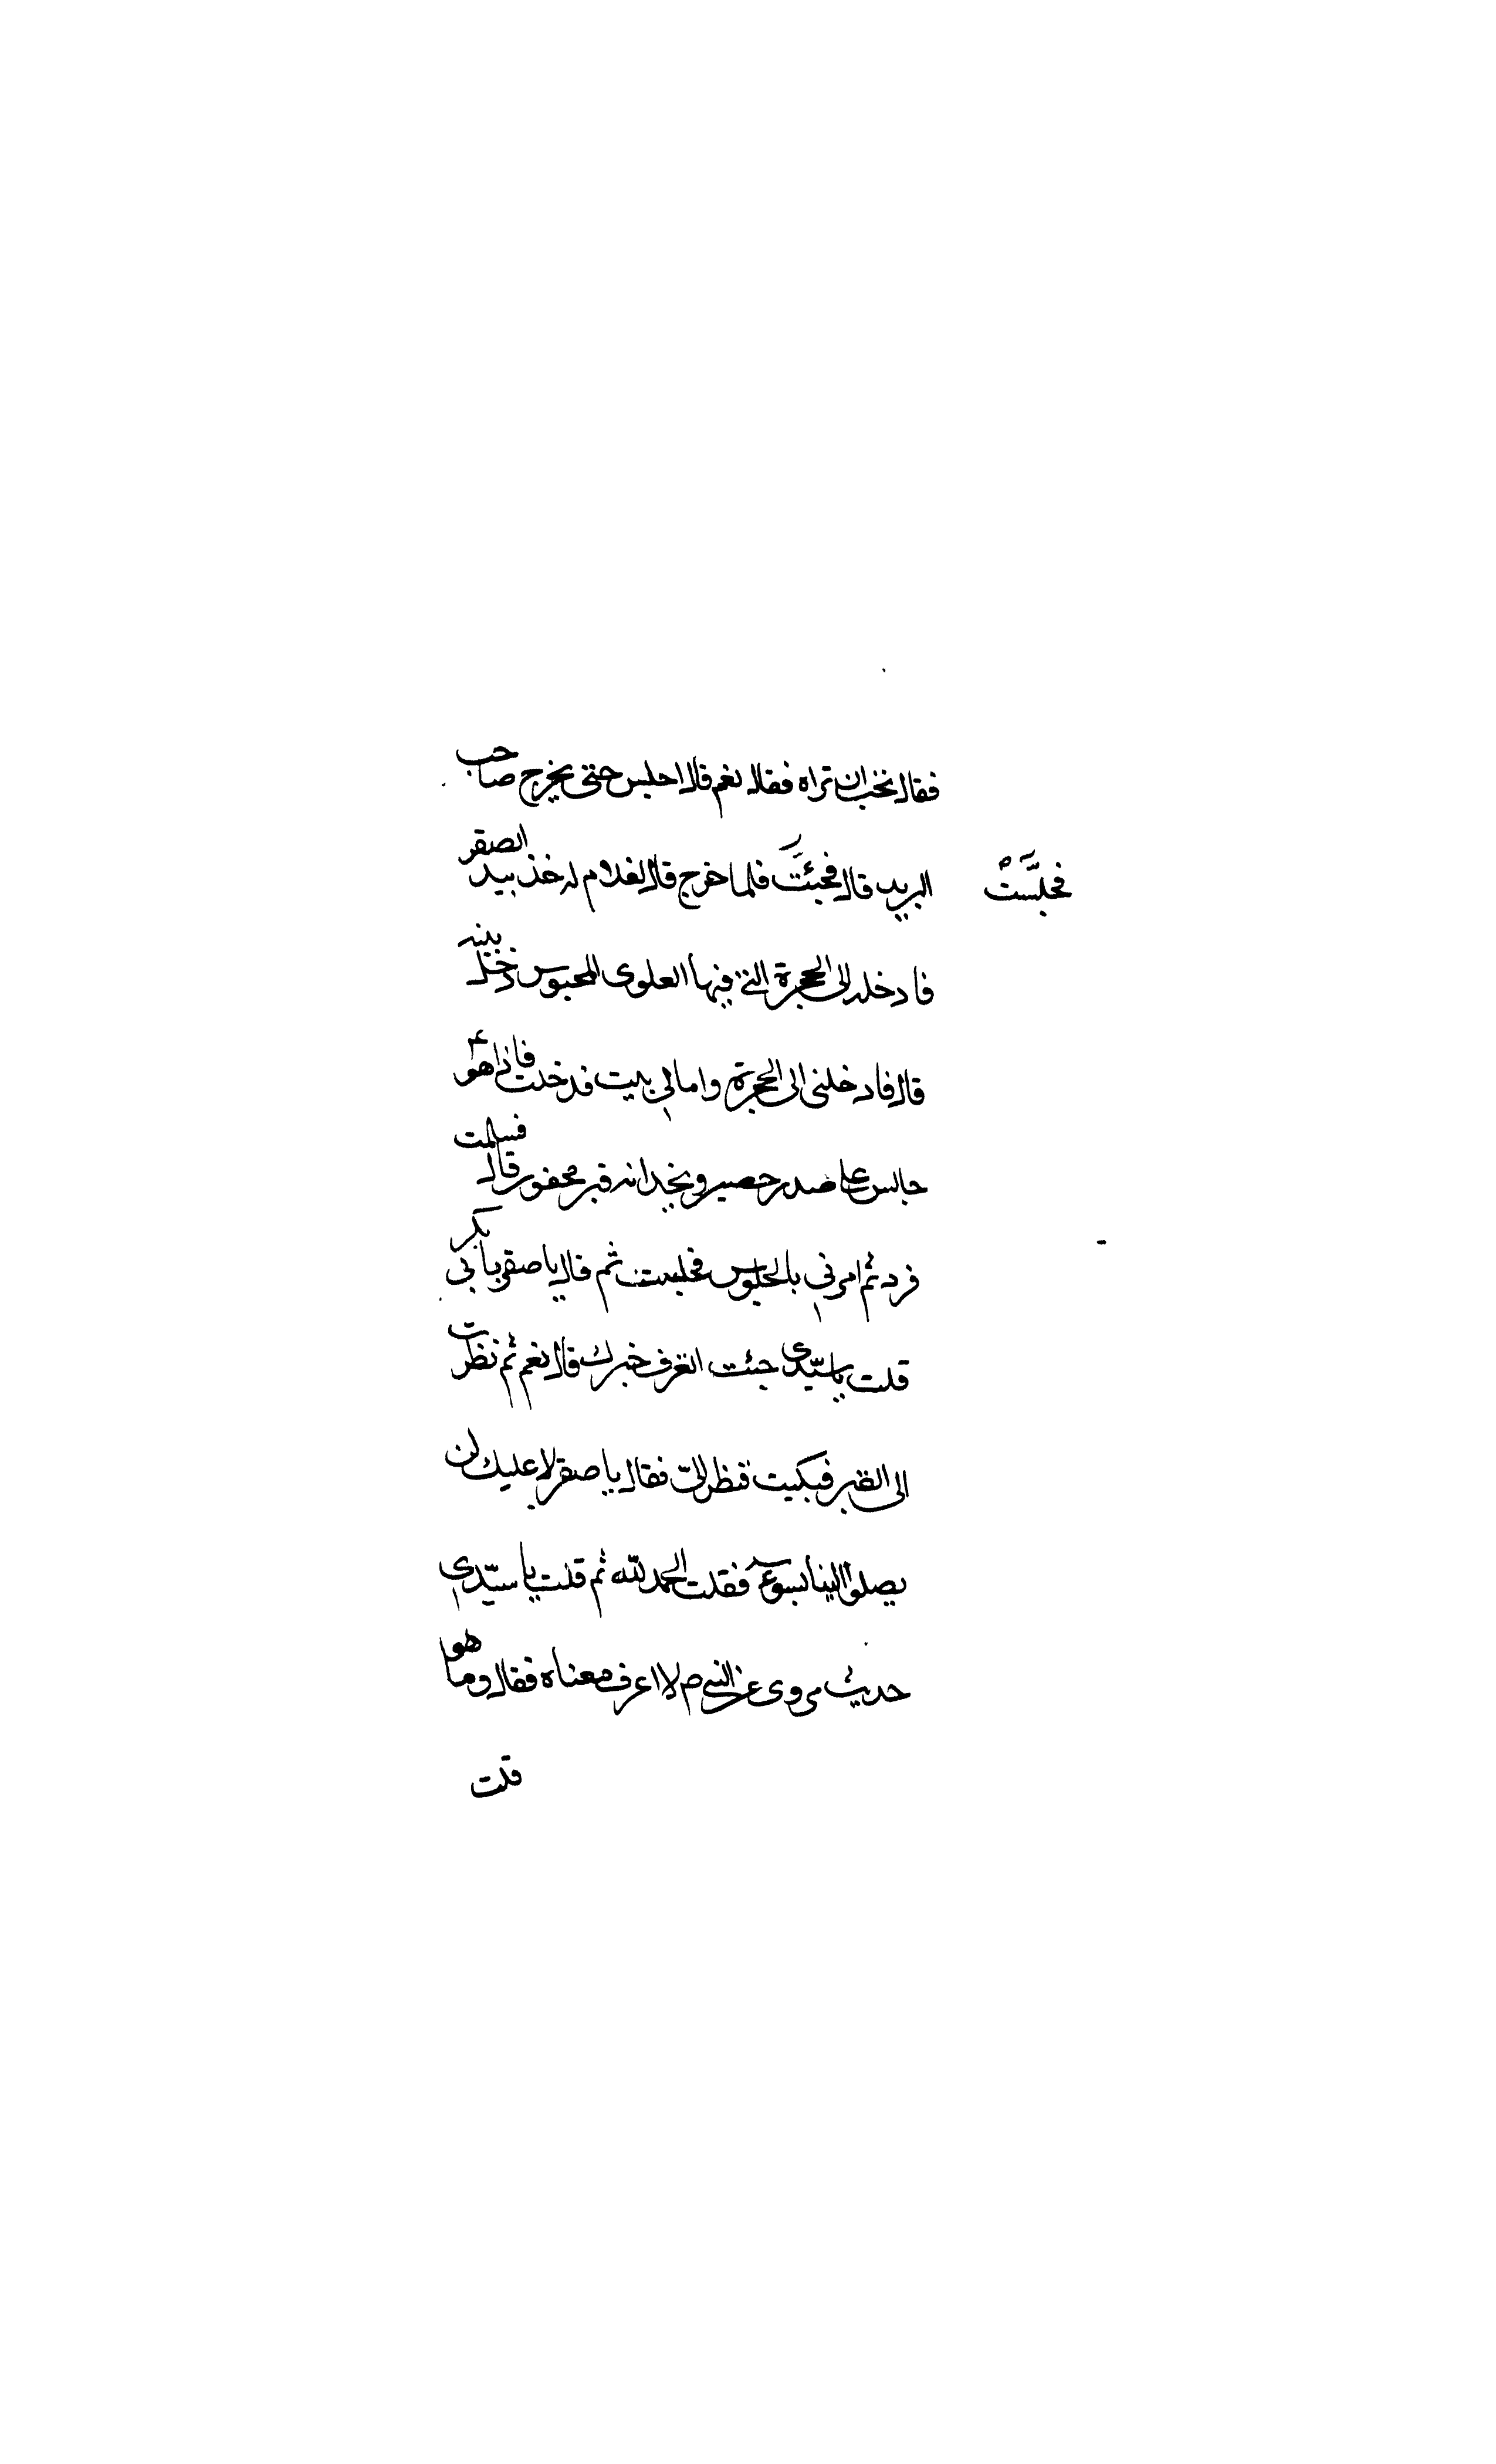 فقال تحب ان تراه فقال نعم قال اجلس حتى يخرج صاحب
البريد قال فجئت فلما خرج قال لغلام له خذ بيد الصقر
فجلست
فادخله الى الحجرة التي فيها العلوي المحبوس وخل بينه
قال فادخلني الى الحجرة واما لي بيت فدخلت فاذا هو ع
جالس على صدر حصير وبحدائه قبر محفور قال فسلمت
فرد ثم امرني بالجلوس فجلست ثم قال يا صقر ما بي بكر
قلت يا سيدي جئت اتعرف خبرك قال نعم ثم نظرت
الى القبر فبكيت فنظر الي فقال يا صقر لا عليك لن
يصلوا الينا بسوء فقلت الحمد لله ثم قلت يا سيدي
حديث مروي عن النبي ص لا اعرف معناه فقال وما هو
قلت